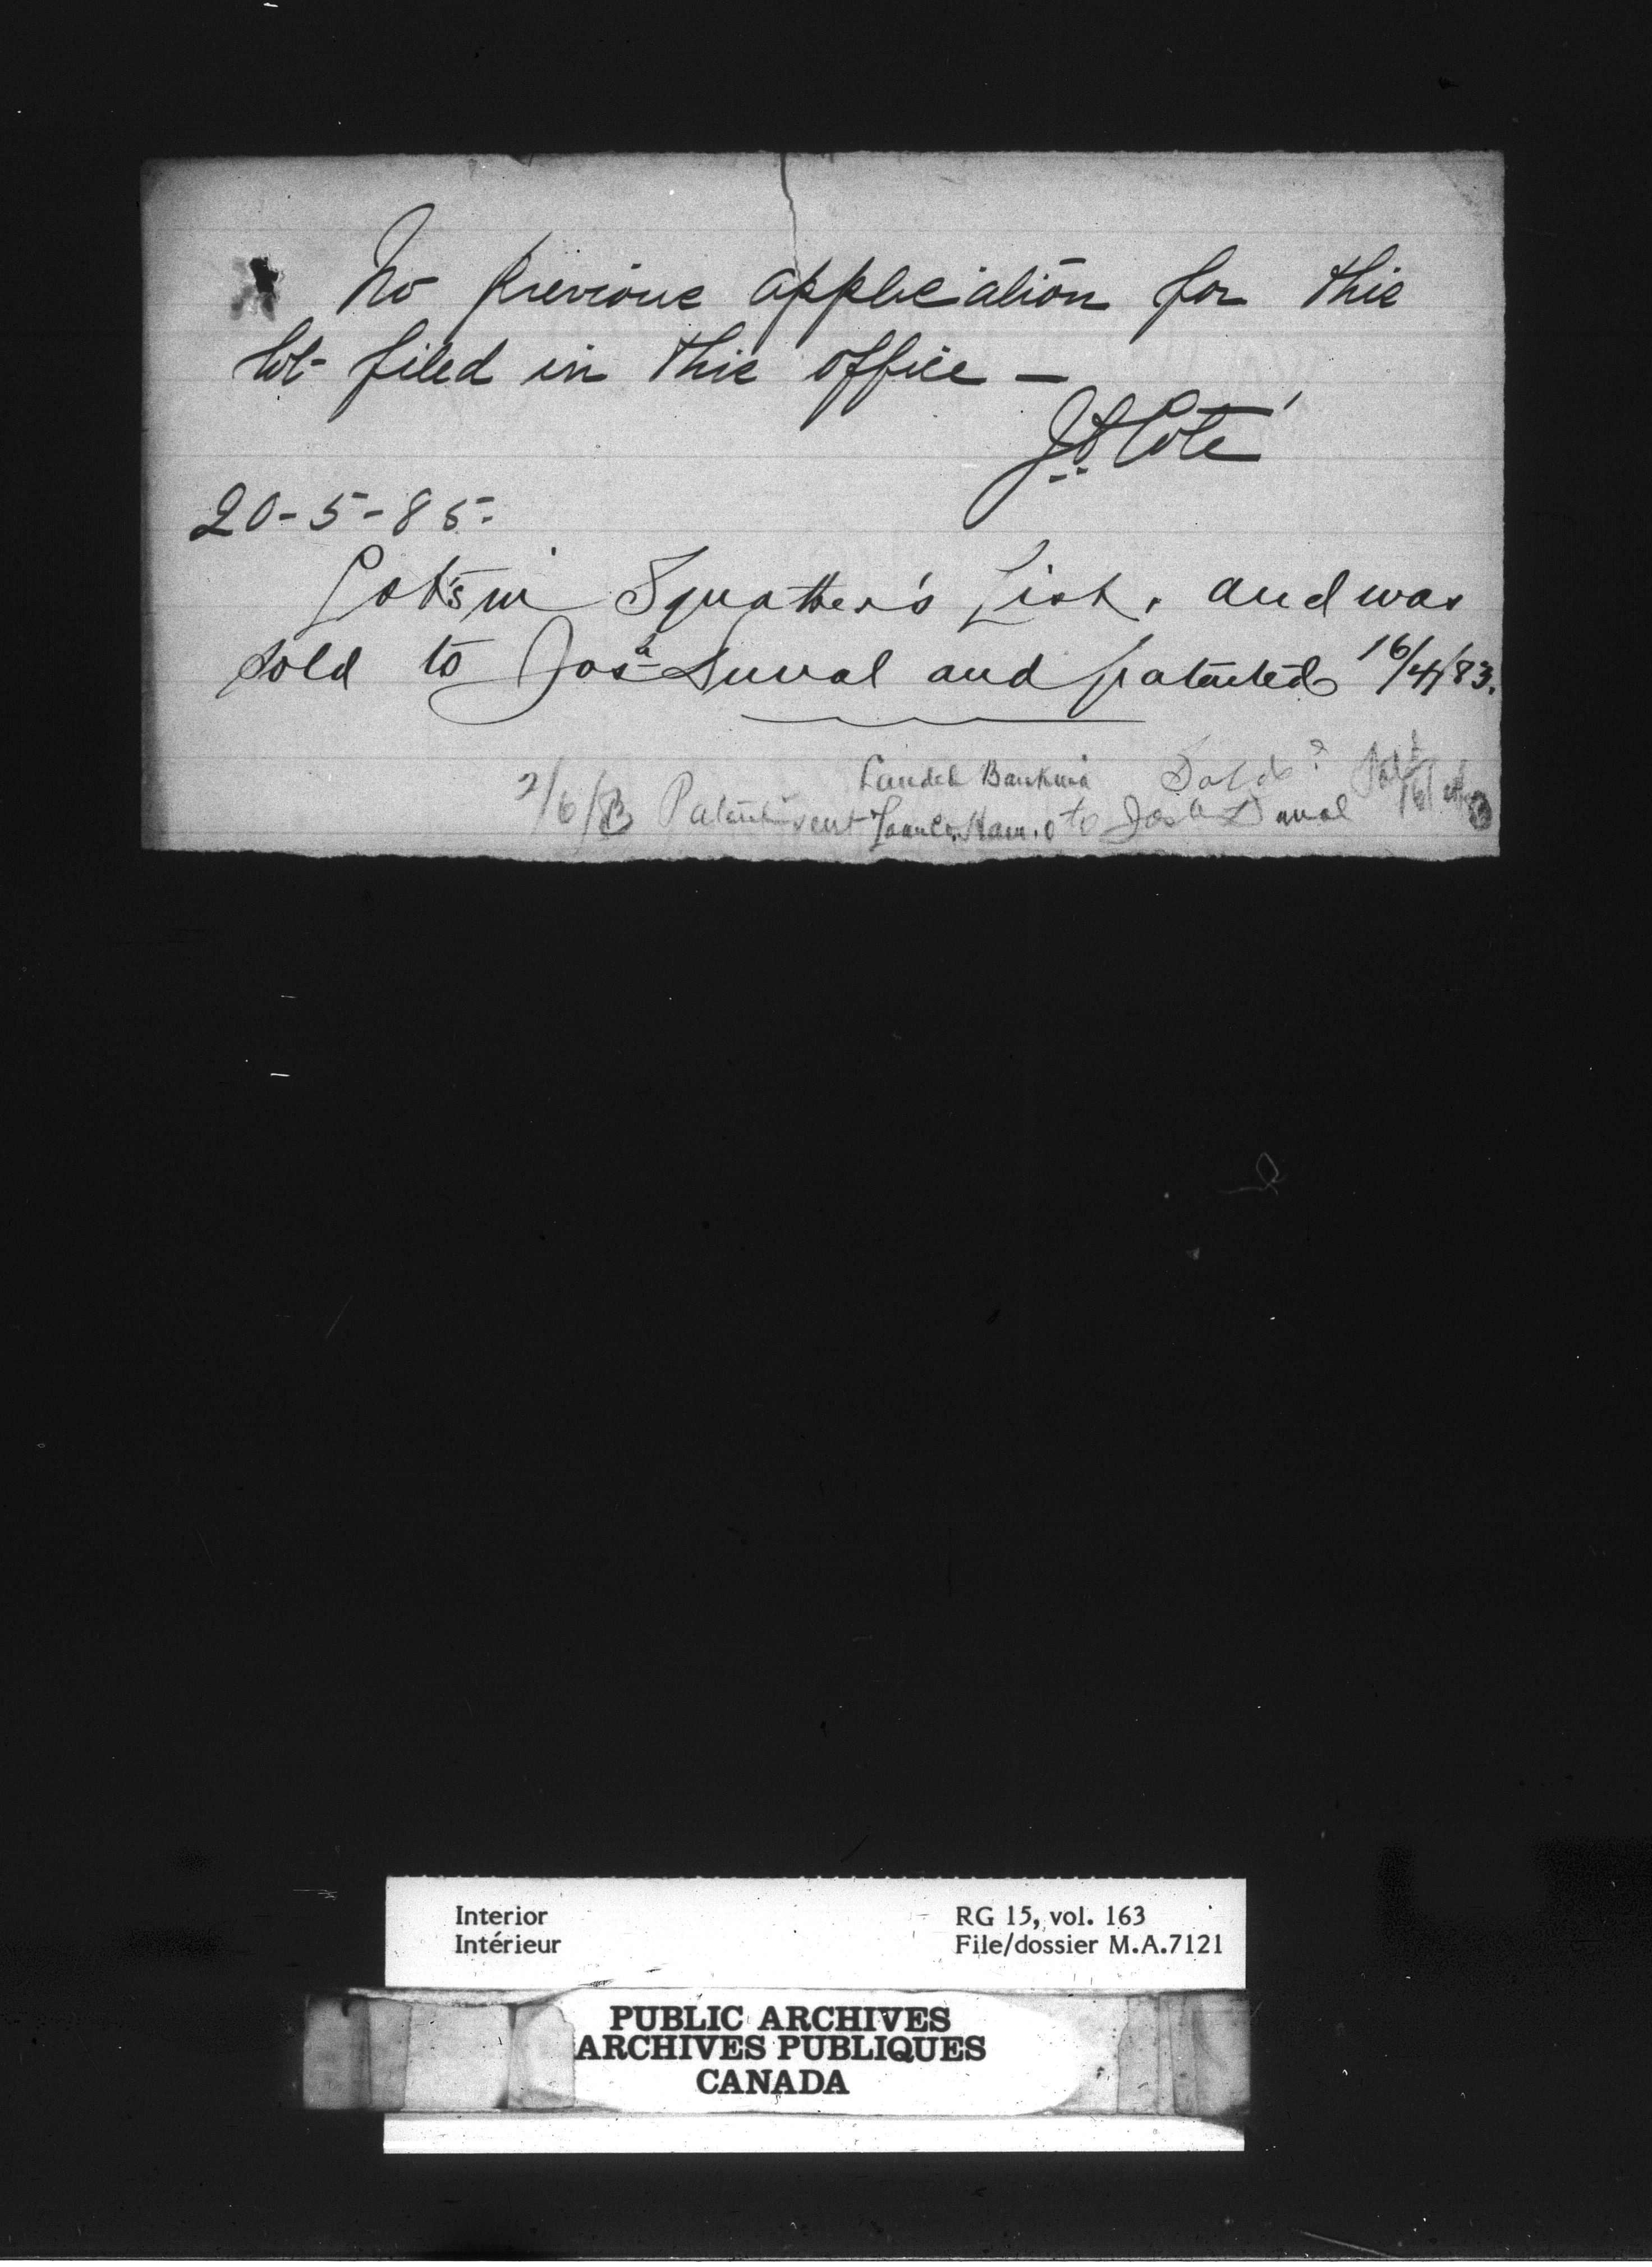 No previous application for this
lot filed in this office —
Coté
20-5-85-
Lot's in Squatter's List. and was
sold to Josh Duval and patented 16/4/83.
Sold
Patent sent to Josh Duval
Interior
Intérieur
RG 15, vol. 163
File/dossier M.A.7121
PUBLIC ARCHIVES
ARCHIVES PUBLIQUES
CANADA